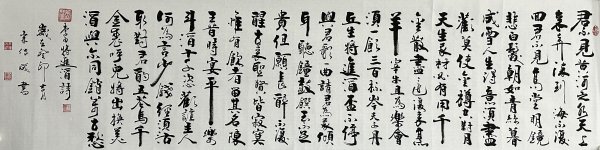 君不見黃河之水天上
來奔流到海不復
回君不見高堂明鏡
悲白髮朝如青絲暮
成雪人生得意須盡
歡莫使金樽空對月
天生我材必有用千
金散盡還復來烹
羊宰牛且為樂會
須一飲三百杯岑夫子丹
丘生將進酒杯不停
與君歌一曲請君為我傾
耳聽鐘鼓饌玉不足
貴但願長醉不復
醒古來聖賢皆寂寞
惟有飲者留其名陳
王昔時宴平樂
斗酒十千恣歡謔主人
何為言少錢徑須沽
取對君酌五花馬千
金裘呼兒將出換美
酒與爾同銷萬古愁
李白將進酒詩
癸卯 月
書